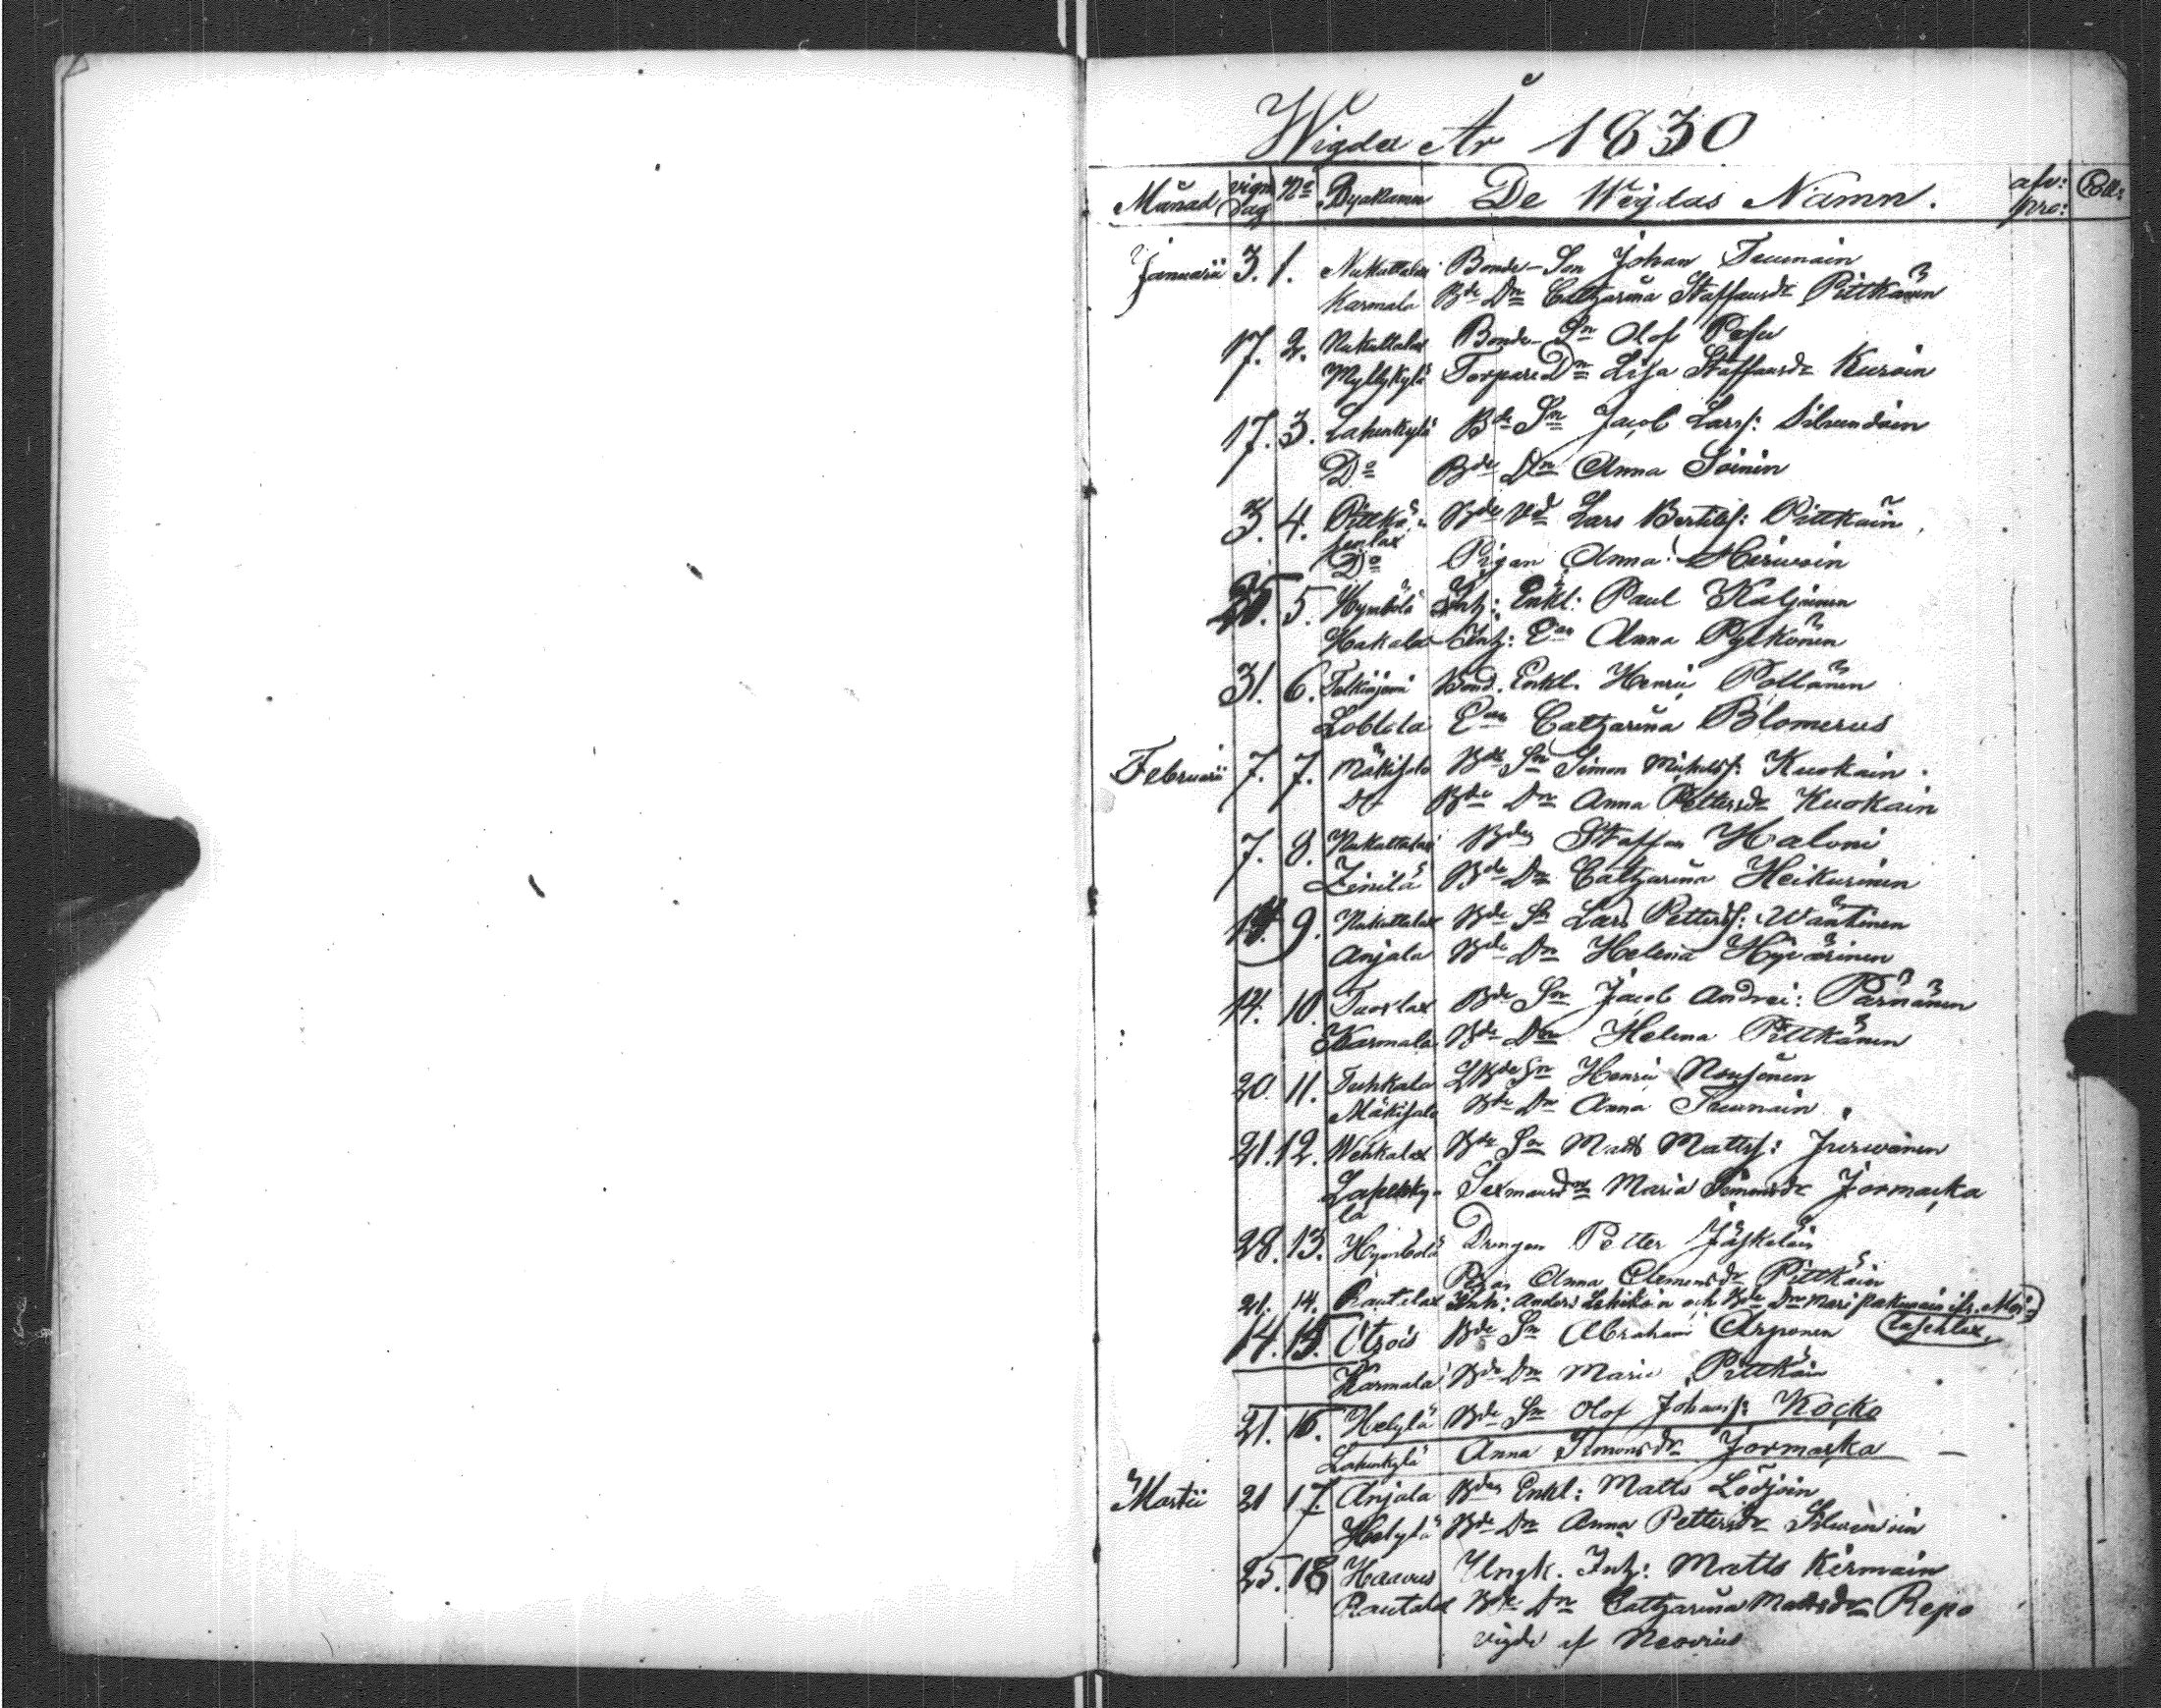 Wigda År 1830
Månad vign Dag No Byanamn De Wigdas Namn. afv: pro: Coll:
Januarii 3. 1. Nukuttalax Bonde-Son Johan Teunain
Karmala Bde Dn Catharina Staffansdr Pittkänen
17. 2. Nukuttalax Bonde-Sn Olof
Myllykylä Torpare Dn Lisa Staffansdr Kuroin
17. 3. Lahenkylä Bde Sn Jacob Larss: Silvendoin
Do Bde Dn Anna Soinin
3. 4. Pittkä- Bde Lars Bertilss: Pittkäin
Do Pigan Anna Hirwoin
5. Hymbölä Inh: Enkl: Paul Kaljainen
Hakala Inh: Ean Anna Pylkönen
31. 6. Telkinjemi Bond. Enkl. Henric Pöllänen
Loblola Ean Catharina Blomerus
Februarii 7. 7. Mäkisalo Bde Sn Simon Michelss: Kuokain
Do Bde Dn Anna Pettersdr Kuokain
7. 8. Nukuttalax Bden Staffan Haloni
Bde Dn Catharina Heikurinen
9. Nukuttalax Bde Sn Lars Petterss: Wäntinen
Anjala Bde Dn Helena Hyvärinen
14. 10. Tuoslax Bde Sn Jacob Andrei: Pärnänen
Karmala Bde Dn Helena Pittkänen
20. 11. Tuhkala Bde Sn Henric Nousonen
Mäkisalo Bde Dn Anna Teunain
21. 12. Wehkalax Bde Sn Matts Mattss: Jurwanen
Lahenky- Sexmansdn Maria Simonsdr Jormacka
lä
28. 13. Hymbölä Drengen Petter Jäskeläin
Pigan Anna Clemensdr Pittkäin
21. 14. Rautalax Inh: Anders Lehikoin och Bde Dn Mari
14. 15. Otsois Bde Sn Abraham Arponen
Karmala Bde Dn Maria Pittkäin
21. 16. Helylä Bde Sn Olof Johanss: Kocko
Lahenkylä Anna Simonsdr Jormacka
Martii 21 17. Anjala Bden Enkl: Matts Lödjöin
Helylä Bde Dn Anna Pettersdr
25. 18 Haavus Ungk. Inh: Matts Kirmain
Rautalax Bde Dn Catharina Mattsdr Repo
vigde af Neovius